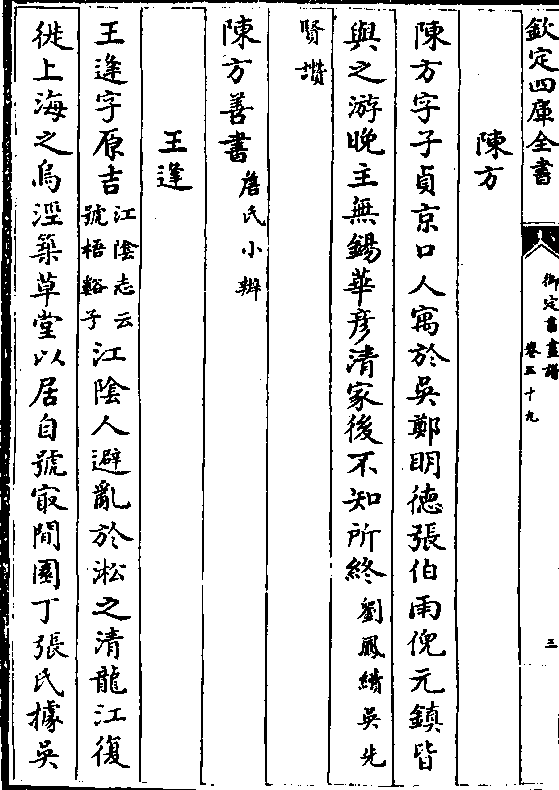 欽定四庫全書
御定書畫譜
卷五十九
三
陳方
陳方字子貞京口人寓於吳鄭明德張伯雨倪元鎮皆
與之游晚主無錫華彦清家後不知所終劉鳳續吳先
賢讚
陳方善書詹氏小辨
王逢
王逢字原吉江陰志云號梧谿子江陰人避亂於淞之清龍江復
徙上海之烏涇築草堂以居自號㝡閒園丁張氏據吳